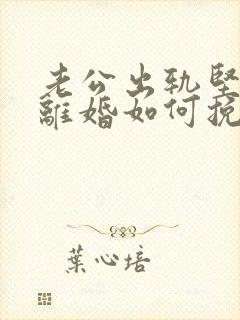 老公出轨坚
離婚如何挽
葉心培